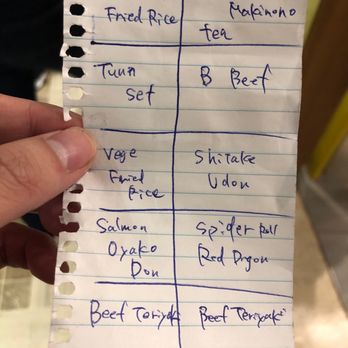 Fried Rice
Makimono
tea
Tuna
set
B Beef
Vege
Fried
Rice
Shitake
Udon
Salmon
Oyako
Don
Spider Roll
Red Drgon
Beef Teriyaki
Beef Teriyaki